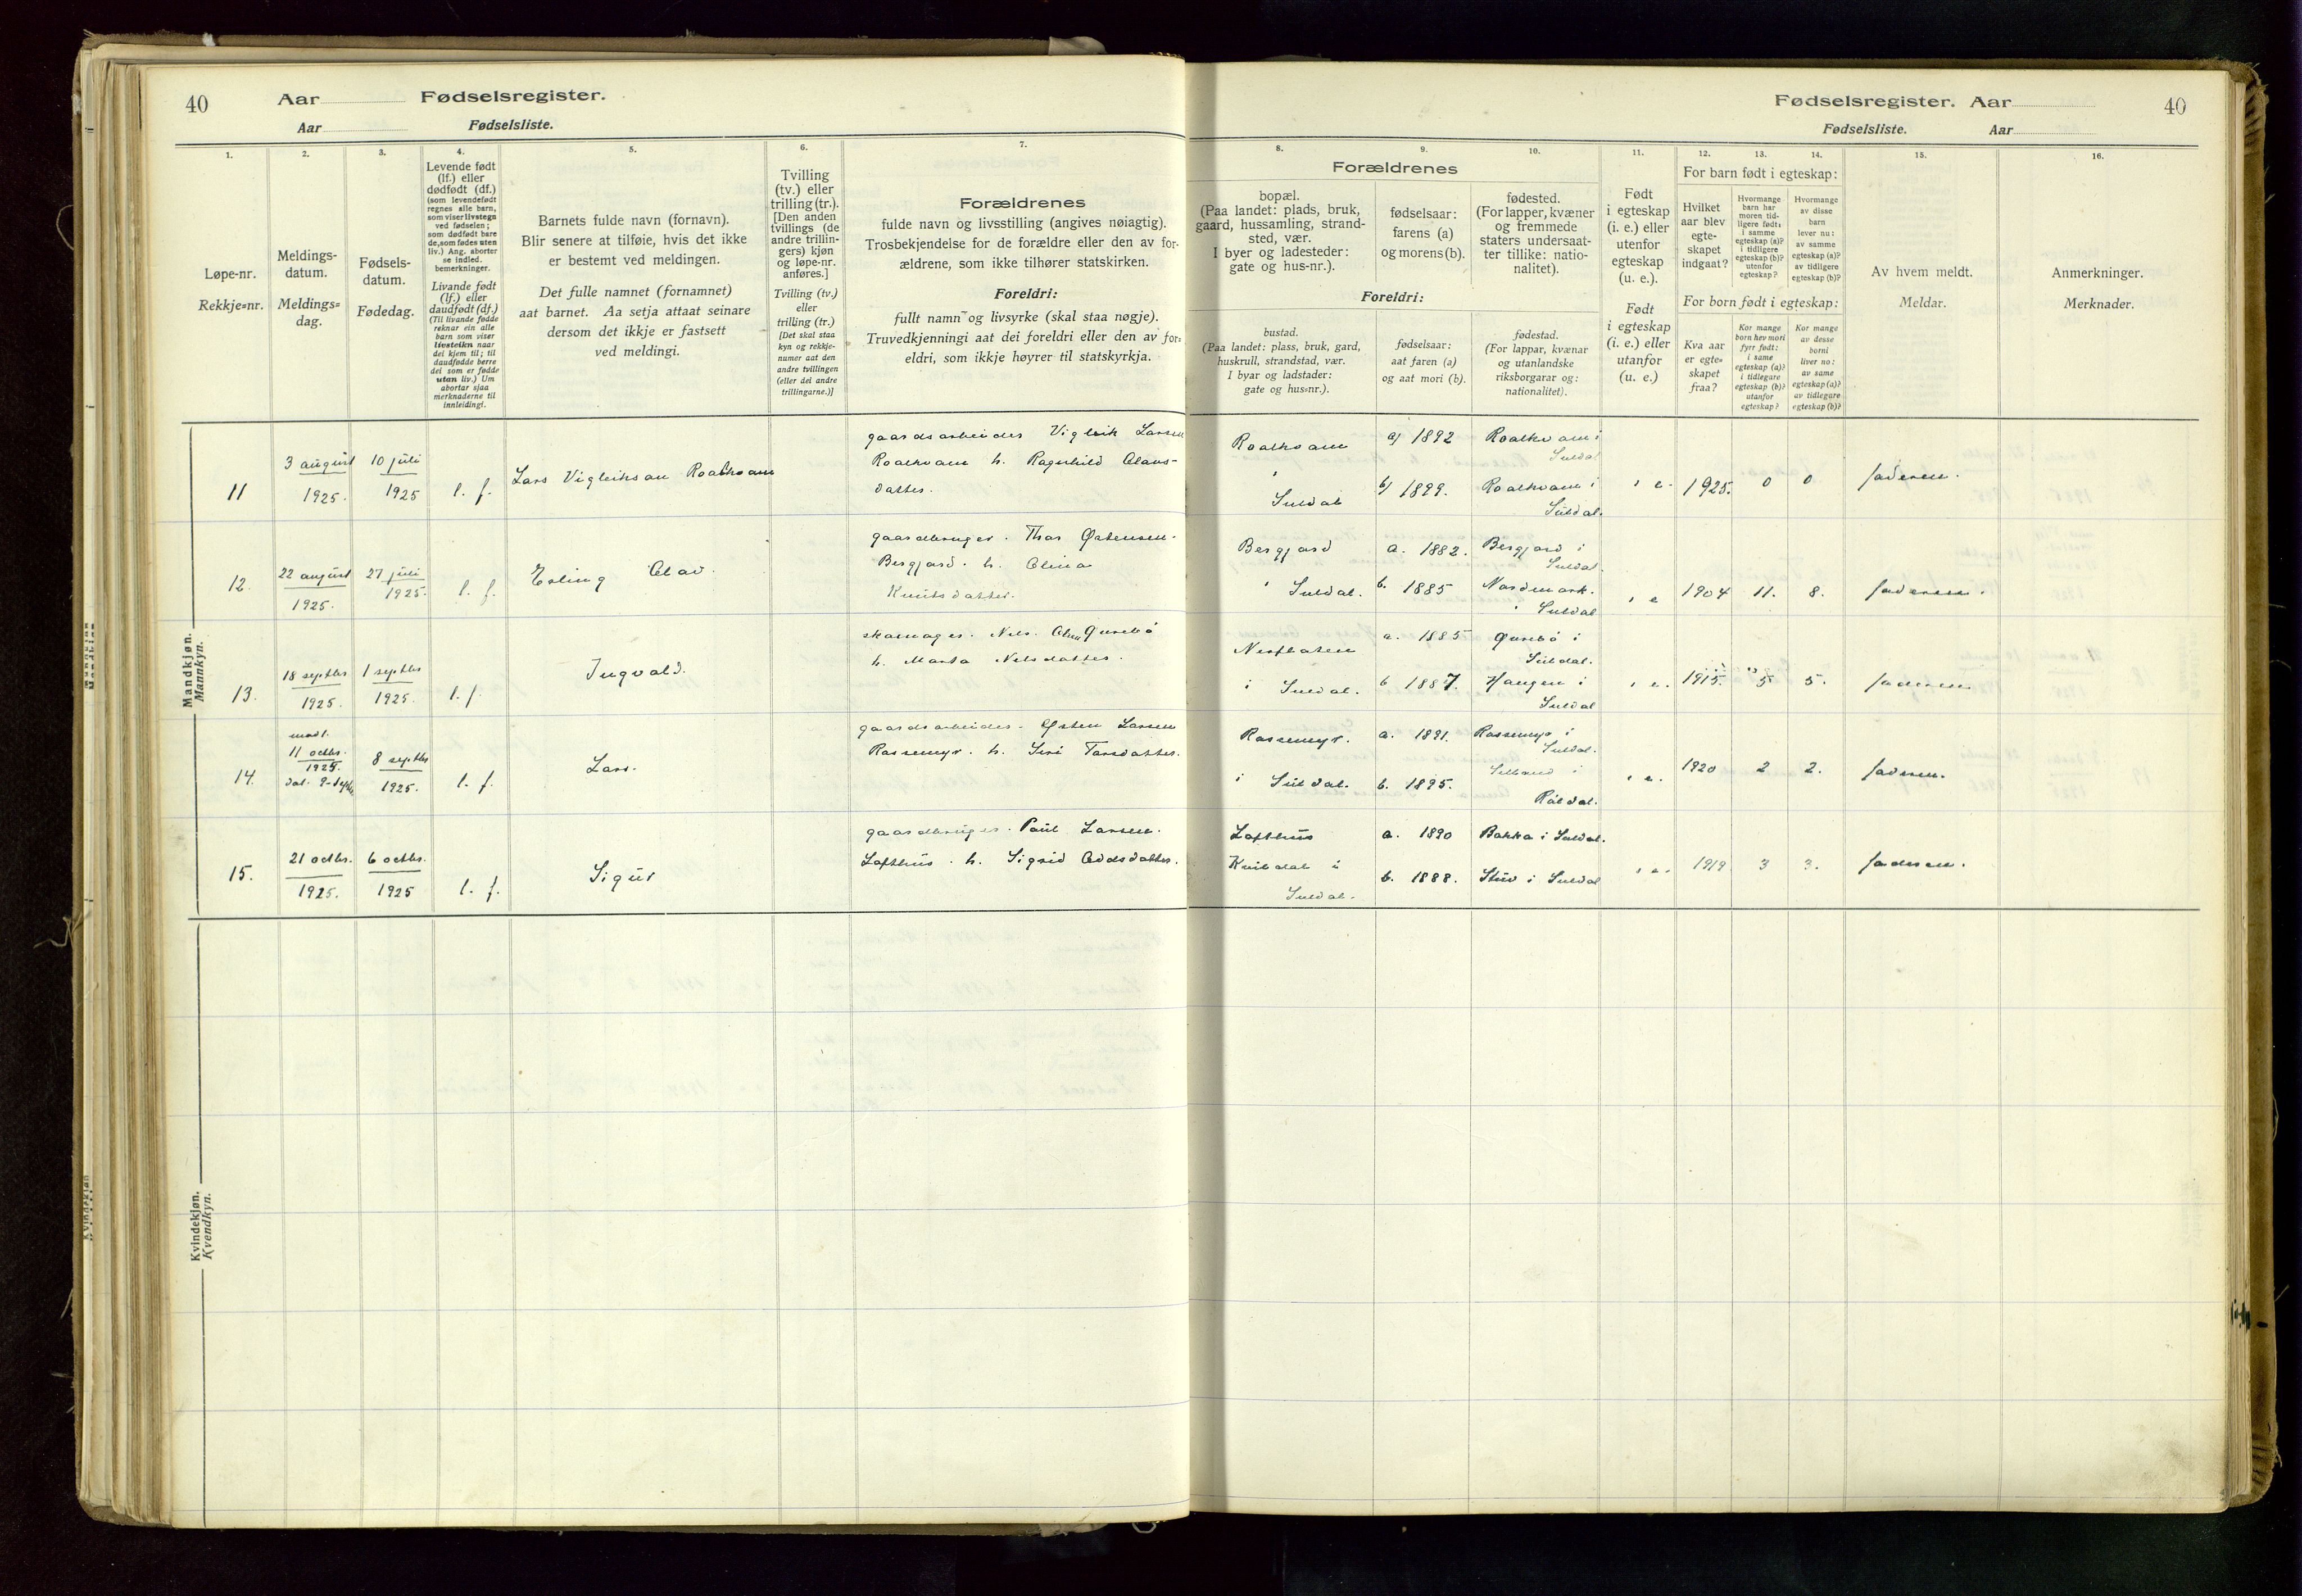 40
Aar
Fødselsregister.
Aar
Fødselsliste.
Fødselsregister. Aar
40
Fødselsliste.
Aar
1.
2.
3.
4.
5.
6.
7.
8.
9.
10.
11.
12.
13.
14.
15.
16.
Løpe-nr.
Rekkje=nr.
Meldings-
datum.
Meldings=
dag.
Fødsels-
datum.
Fødedag.
Levende født
(lf.) eller
dødfødt (df.)
(som levendefødt
regnes alle barn,
som viser livstegn
ved fødselen;
som dødfødt bare
de, som fødes uten
liv.) Ang. aborter
se indled.
bemerkninger.
Livande født
(lf.) eller
daudfødt (df.)
(Til livande fødde
reknar ein alle
barn som viser
livsteikn naar
dei kjem til; til
daudfødde berre
dei som er fødde
utan liv.) Um
abortar sjaa
merknaderne til
innleidingi.
Barnets fulde navn (fornavn).
Blir senere at tilføie, hvis det ikke
er bestemt ved meldingen.
Det fulle namnet (fornamnet)
aat barnet. Aa setja attaat seinare
dersom det ikkje er fastsett
ved meldingi.
Tvilling
(tv.) eller
trilling (tr.).
[Den anden
tvillings (de
andre trillin-
gers) kjøn
og løpe-nr.
anføres.]
Tvilling (tv.)
eller
trilling (tr.)
[Det skal staa
kyn og rekkje-
numer aat den
andre tvillingen
(eller dei andre
trillingarne.)]
Forældrenes
fulde navn og livsstilling (angives nøiagtig).
Trosbekjendelse for de forældre eller den av for-
ældrene, som ikke tilhører statskirken.
Foreldri:
fullt namn og livsyrke (skal staa nøgje).
Truvedkjenningi aat dei foreldri eller den av for-
eldri, som ikkje høyrer til statskyrkja.
Forældrenes
bopæl.
(Paa landet: plads, bruk,
gaard, hussamling, strand-
sted, vær.
I byer og ladesteder:
gate og hus-nr.).
fødselsaar:
farens (a)
og morens (b).
fødested.
(For lapper, kvæner
og fremmede
staters undersaat-
ter tillike: natio-
nalitet).
Foreldri:
bustad.
(Paa landet: plass, bruk, gard,
huskrull, strandstad, vær.
I byar og ladstader:
gate og hus=nr.).
fødselsaar:
aat faren (a)
og aat mori (b).
fødestad.
(For lappar, kvænar
og utanlandske
riksborgarar og:
nationalitet).
Født
i egteskap
(i. e.) eller
utenfor
egteskap
(u. e.).
Født
i egteskap
(i. e.) eller
utanfor
(u. e.)
For barn født i egteskap:
Hvilket
aar blev
egte-
skapet
indgaat?
Hvormange
barn har
moren tid-
ligere født:
i samme
egteskap (a)?
i tidligere
egteskap (b)?
utenfor
egteskap?
Hvormange
av disse
barn
lever nu:
av samme
egteskap (a)?
av tidligere
egteskap (b)?
For born født i egteskap:
Kva aar
er egte=
skapet
fraa?
Kor mange
born hev mori
fyrr født:
i same
egteskap (a)?
i tidlegare
egteskap (b)?
utanfor
egteskap?
Kor mange
av desse
borni
liver no:
av same
egteskap (a)?
av tidlegare
egteskap (b)?
Av hvem meldt.
Meldar.
Anmerkninger.
Merknader.
Mandkjøn.
Mannkyn.
11
3 august
1925.
10 juli
1925
l. f.
Lars Vigleiksan Roalkvam
gaardsarbeider Vigleik Larsen
Roalkvam h. Ragnhild Olavs-
datter.
Roalkvam
i
Suldal
a) 1892
b) 1899.
Roalkvam i
Suldal
Roalkvam i
Suldal.
i e.
1925.
0
0
faderen.
12.
22 august
1925.
27 juli
1925.
l. f.
Erling Olav.
gaardbruger. Thor Østensen
Bergjord. h. Olina
Knutsdatter.
Bergjord
i Suldal.
a. 1882.
b. 1885
Bergjord i
Suldal.
Nordmark.
i Suldal
i e
1904
11.
8.
faderen.
13.
18 septbr
1925.
1 septbr
1925.
l. f
Ingvald.
skomager. Nils. Olsen Qurebø
h. Marta Nilsdatter.
Nesflaten
i Suldal.
a. 1885
b 1887.
Qurebø i
Suldal.
Haugen i
Suldal
i e.
1915.
5
5.
faderen
14.
modt.
11 octbr.
1925.
dat. 9-septbr
8 septbr
1925.
l. f.
Lars.
gaardsarbeider. Østen Larsen
Rassemyr. h. Siri Tarsdatter.
Rassemyr.
i Suldal.
a. 1891.
b. 1895.
Rassemyr i
Suldal.
i
Røldal.
i e.
1920
2
2.
faderen.
15.
21 octbr.
1925.
6 octbr.
1925
l. f.
Sigur
gaardbruger. Paul Larsen.
Lofthus. h. Sigrid Oddsdatter.
Lofthus
i
Suldal.
a. 1890
b. 1888.
Bakka i Suldal.
Stuv i Suldal
i e.
1919
3
3.
faderen.
Kvindekjøn.
Kvendkyn.